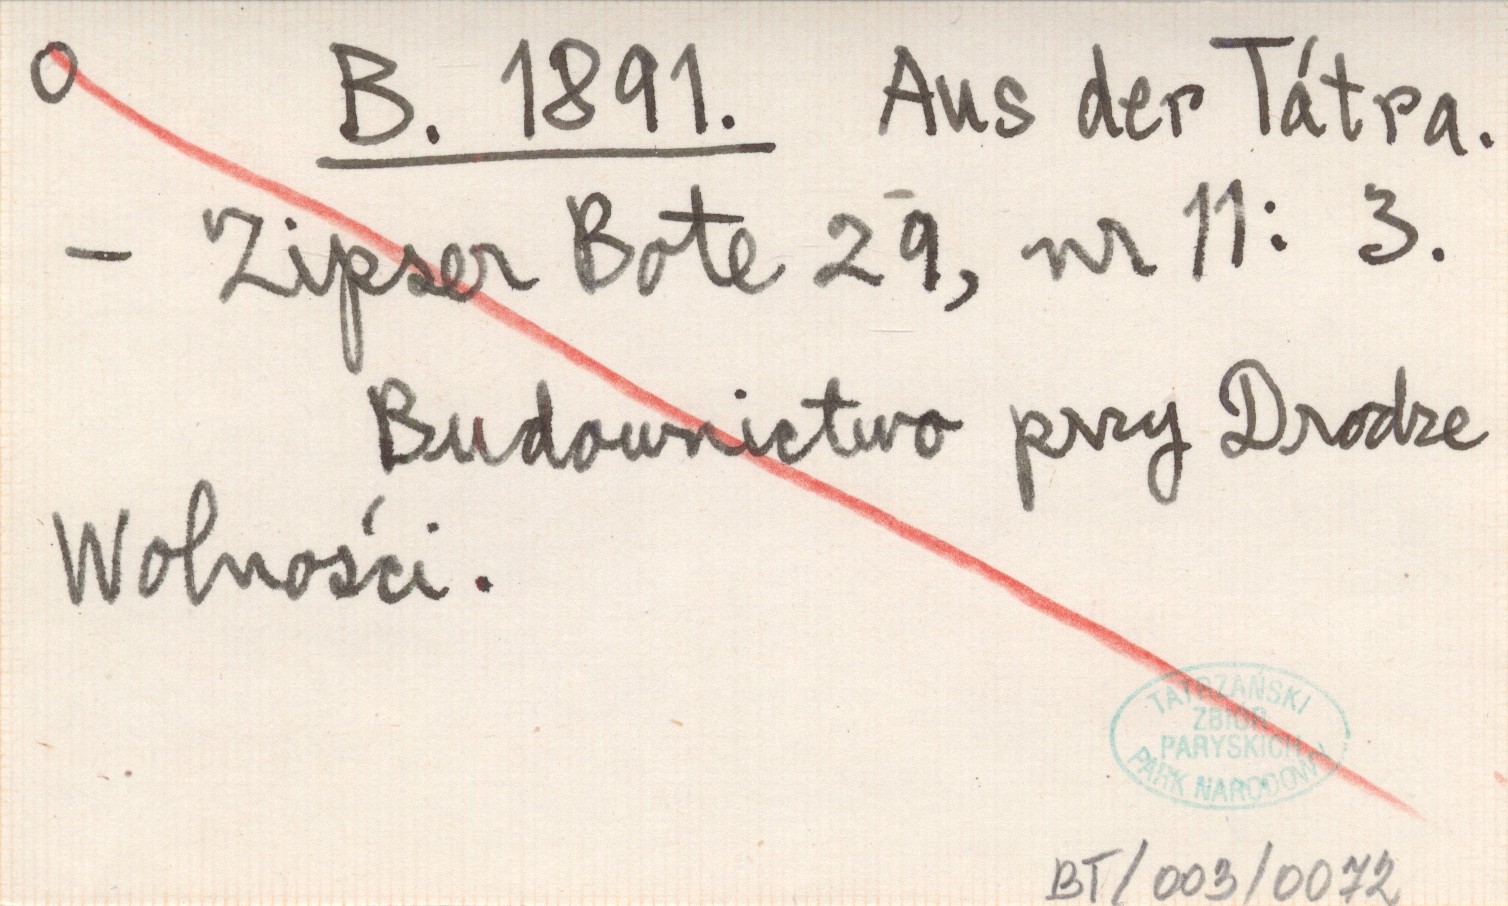 O B. 1891. Aus der Tátra.
– Zipser Bote 29, nr 11: 3.
Budownictwo przy Drodze
Wolności.
TATRZAŃSKI
ZBIÓR
PARYSKICH
PARK NARODOWY
BT/003/0072